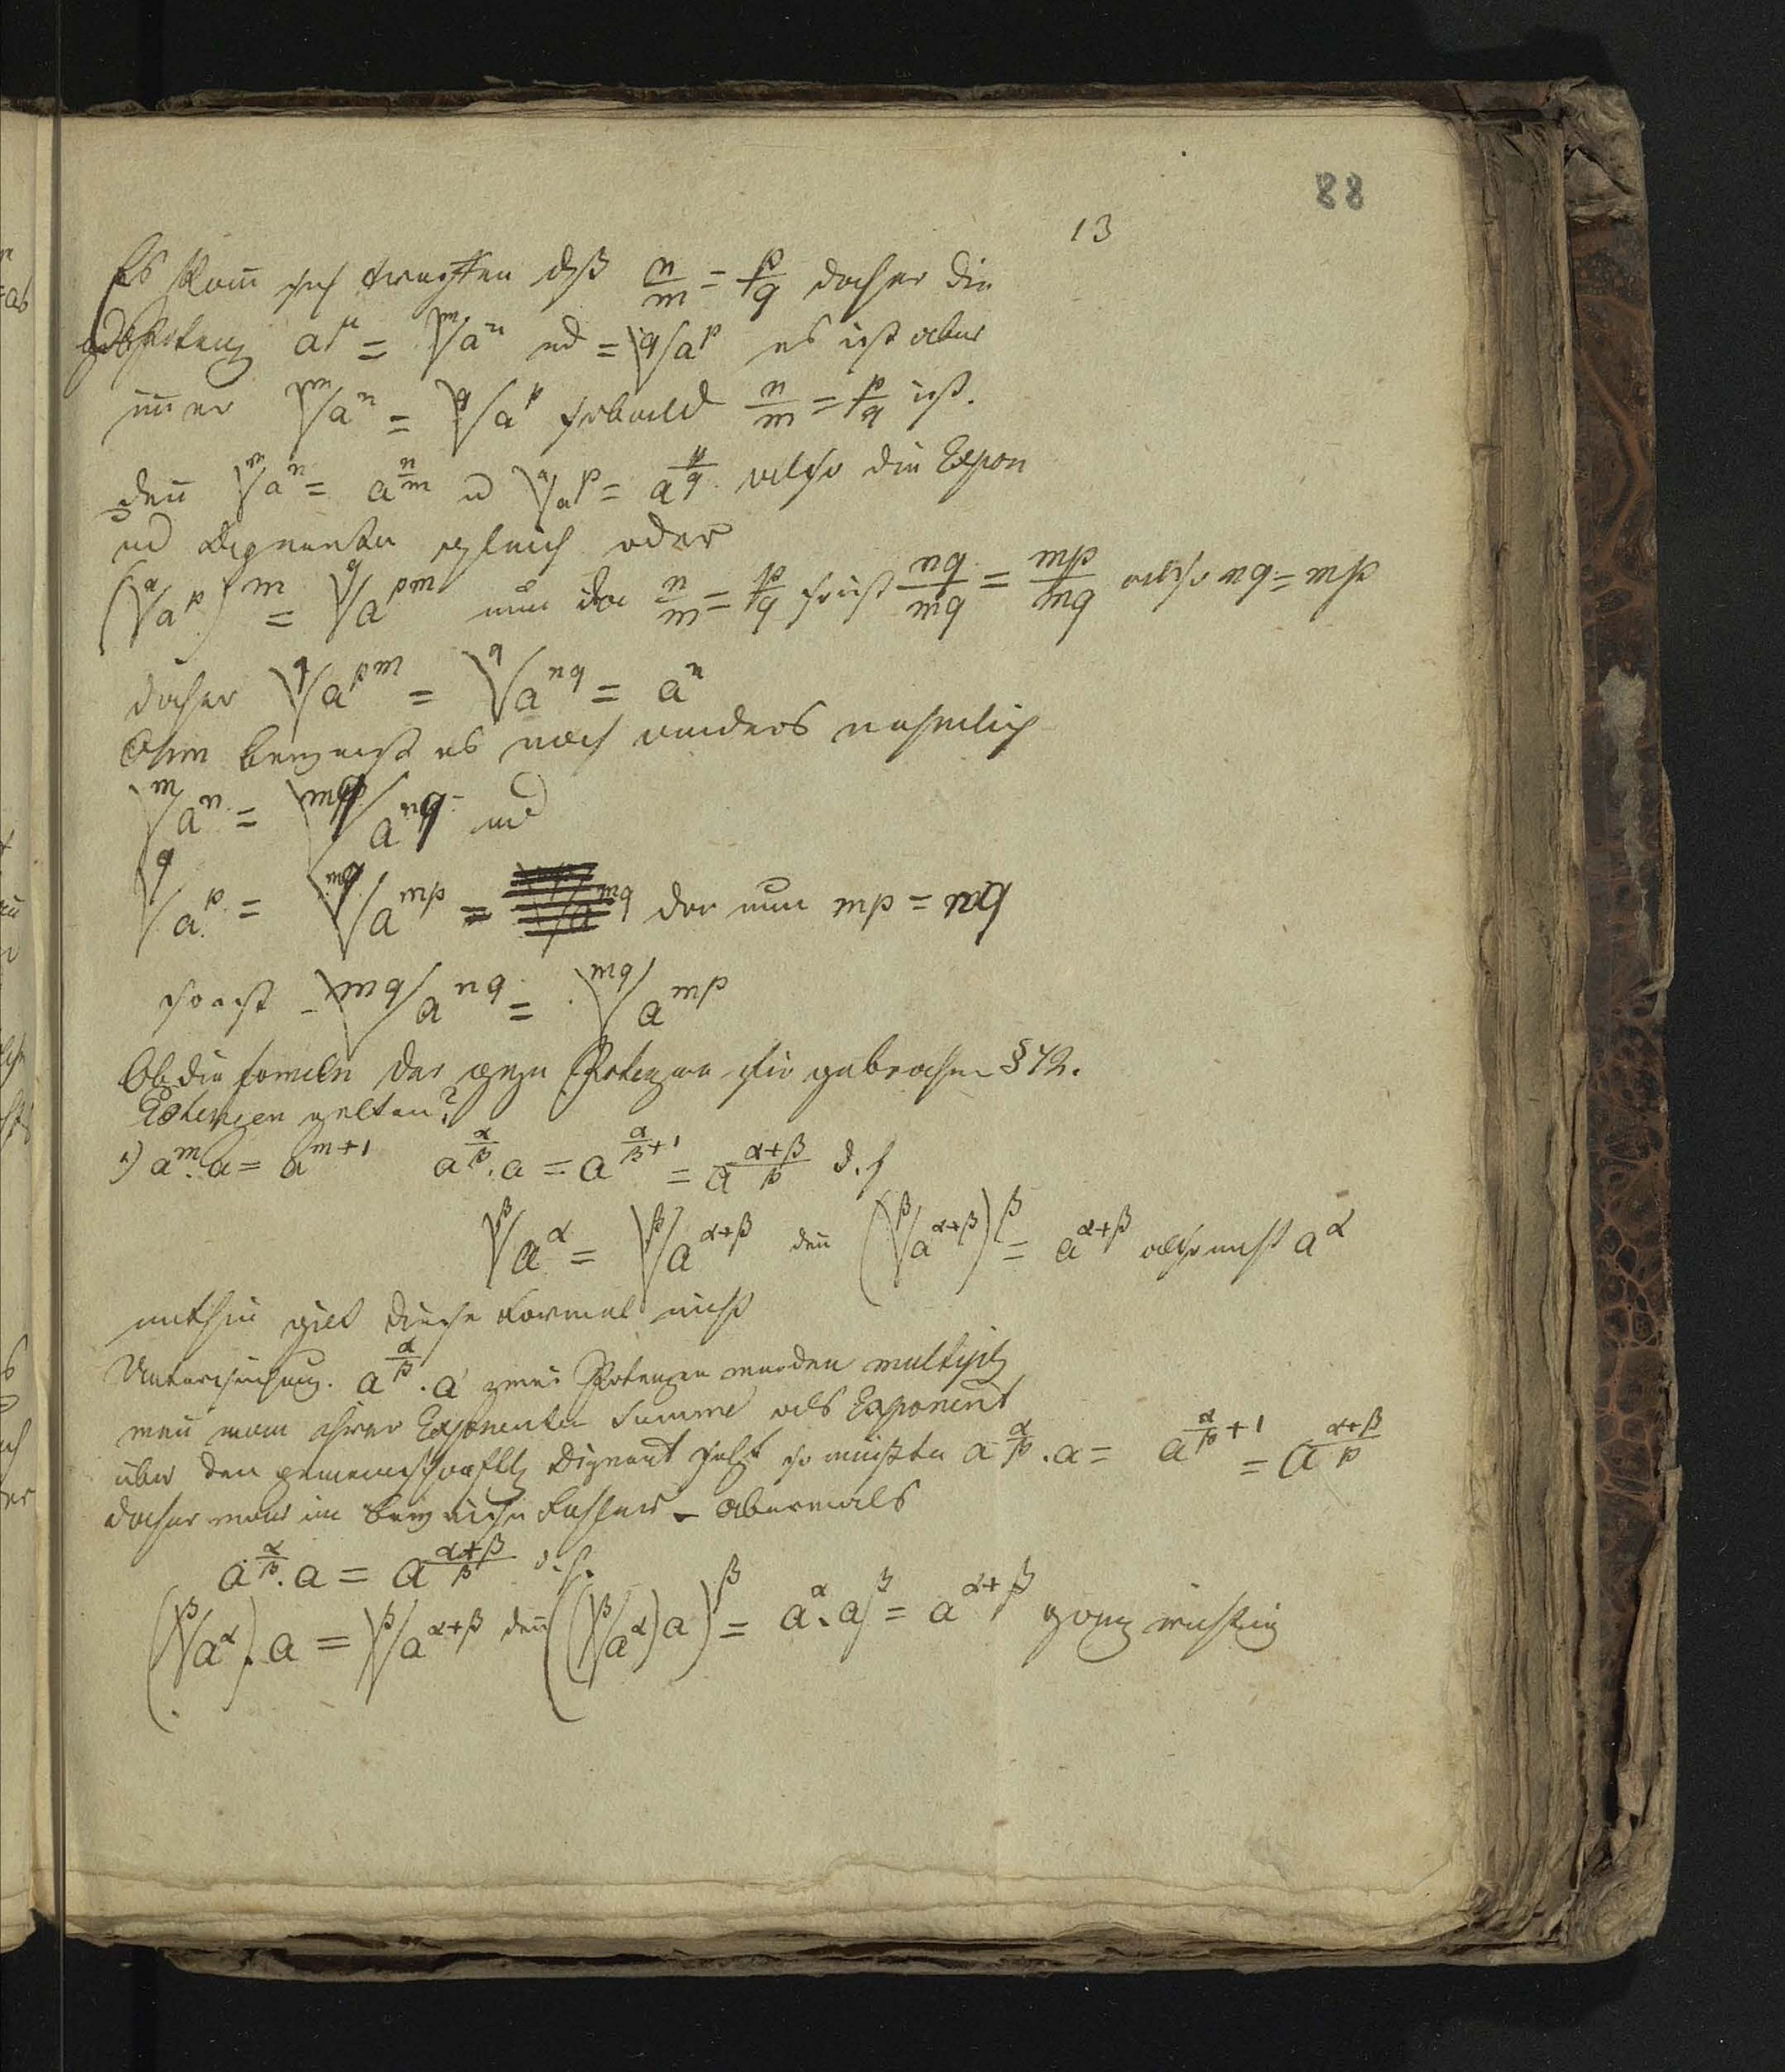 88
13
Es kañ sich treffen dß n/m = p/q daher die
gebPotenz a^μ = ᵐ√a^n ud = ^q√a^p es ist aber
im̄er ᵐ√a^n = ^q√a^p sobald n/m = p/q ist.
deñ ᵐ√a^n = a^(n/m) u ^q√a^p = a^(p/q) also die Expon
ud Dignanden gleich oder
(^q√a^p)^m = ^q√a^(pm) nun da n/m = p/q so ist nq/mq = mp/mq also nq = mp
daher ^q√a^(pm) = ^q√a^(nq) = a^n
Ohm beweist es noch anders nehmlich
ᵐ√a^n = ^(mq)√a^(nq) und
^q√a^p = ^(mq)√a^(mp) = da nun mp = nq
so ist ^(mq)√a^(nq) = ^(mq)√a^(mp)
Ob die formeln der ganzen Potenzen für gebrochene §42.
Potenzen gelten?
1) a^m . a = a^(m+1) a^(α/β) . a = a^(α/β+1) = a^((α+β)/β) d. h
^β√a^α = ^β√a^(α+β) deñ (^β√a^(α+β))^β = a^(α+β) also nicht a^α
mithin gilt diese Formel nicht
Untersuchung. a^(α/β) . a zwei Potenzen werden multipliz
weñ man ihrer Exponenten Summe als Exponent
über den gemeinschaftl Dignand setzt so müßte a^(α/β) . a = a^(α/β+1) = a^((α+β)/β)
daher war im Beweise Fehler – abermals
a^(α/β) . a = a^((α+β)/β) d. h.
(^β√a^α) . a = ^β√a^(α+β) deñ ((^β√a^α) a)^β = a^α . a^β = a^(α+β) ganz richtig